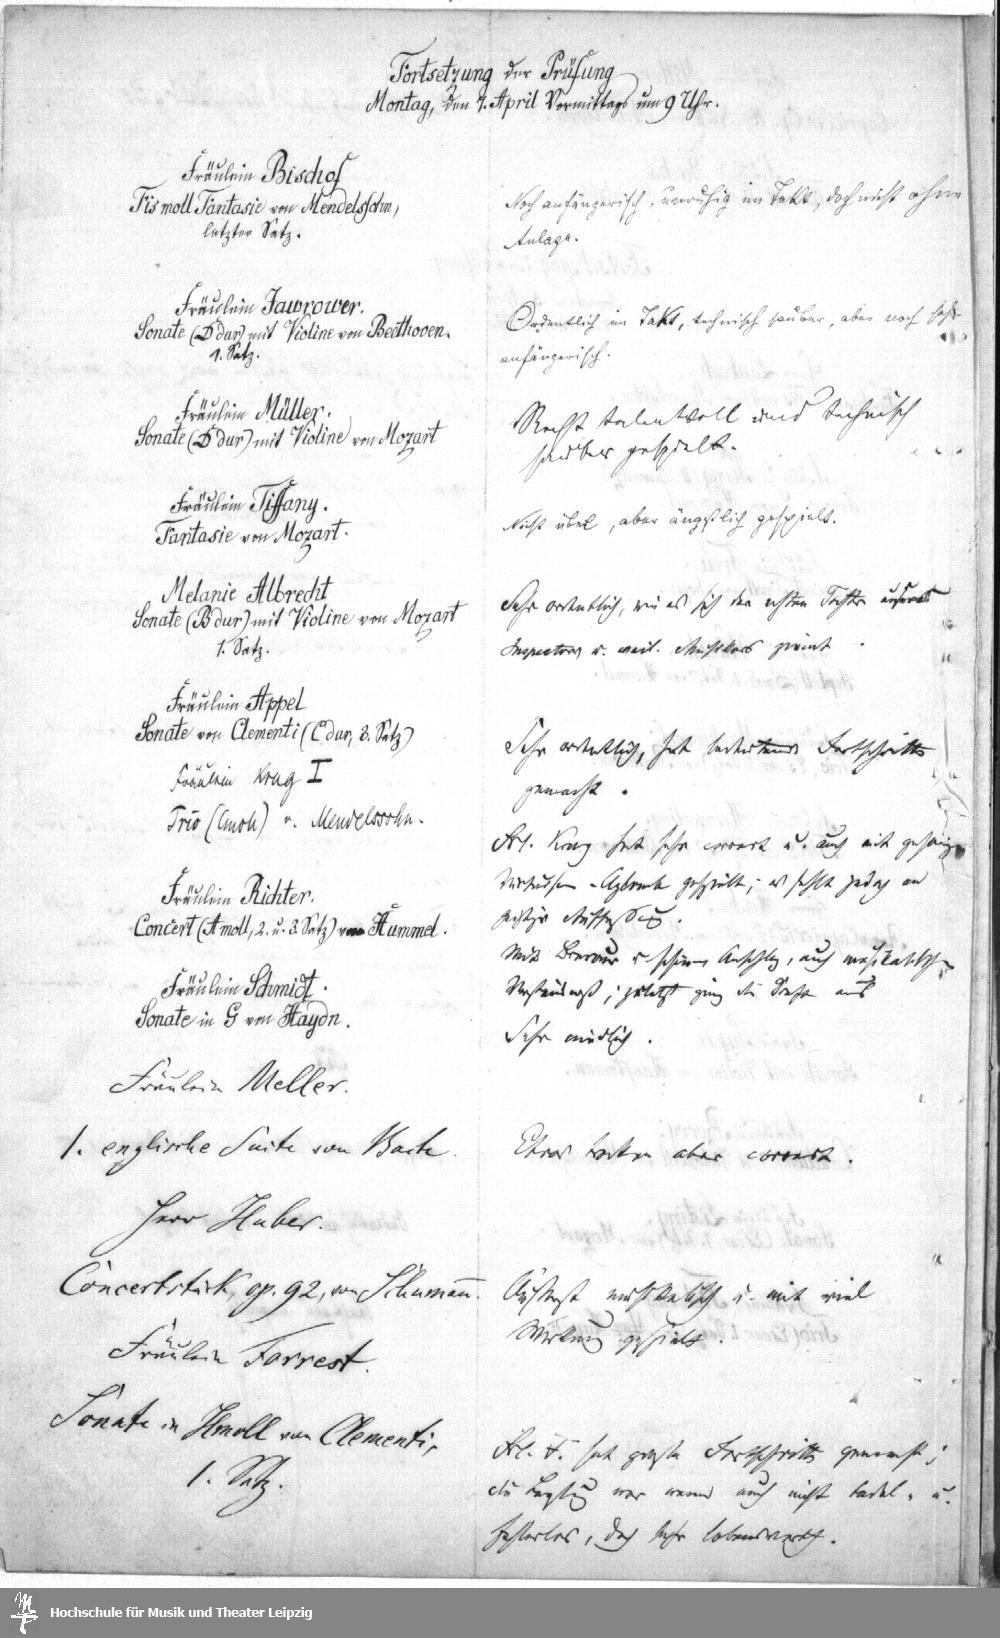 Fortsetzung der Prüfung
Montag, den 7. April Vormittags um 9 Uhr.
Fräulein Bischof
Fis moll Fantasie von Mendelssohn,
letzter Satz.
Noch anfängerisch, unruhig im Takt, doch nicht ohne
Anlage.
Fräulein Jawrower.
Sonate (D dur) mit Violine von Beethoven.
1. Satz.
Ordentlich im Takt, technisch sauber, aber noch sehr
anfängerisch.
Fräulein Müller.
Sonate (D dur) mit Violine von Mozart
Recht talentvoll und technisch
sauber gespielt.
Fräulein Tiffany.
Fantasie von Mozart.
Nicht übel, aber ängstlich gespielt.
Melanie Albrecht
Sonate (B dur) mit Violine von Mozart
1. Satz.
Sehr ordentlich, wie es sich der ersten Tochter unseres
Inspectors u. weil. Musikers ziemt.
Fräulein Appel
Sonate von Clementi (C dur, 3. Satz)
Sehr ordentlich, hat bedeutende Fortschritte
gemacht.
Fräulein Krug I
Trio (Cmoll) v. Mendelssohn.
Frl. Krug hat sehr correct u. auch mit gehörigem
gespielt; es fehlt jedoch an
Auffassung.
Fräulein Richter.
Concert (A moll, 2. u. 3. Satz) von Hummel.
Mit Bravour u schönem Anschlag, auch musikalischem
Verständniß; zuletzt ging die Kraft aus
Fräulein Schmidt.
Sonate in G von Haydn.
Sehr niedlich.
Fräulein Meller.
1. englische Suite von Bach.
Etwas trocken aber correct.
Herr Huber.
Concertstück, op. 92, von Schumann.
Äußerst musikalisch u. mit viel
Wirkung gespielt.
Fräulein Forrest.
Sonate in Hmoll von Clementi,
1. Satz.
Frl. F. hat große Fortschritte gemacht;
die Leistung war wenn auch nicht tadel- u.
fehlerlos, doch sehr lobenswerth.
Hochschule für Musik und Theater Leipzig